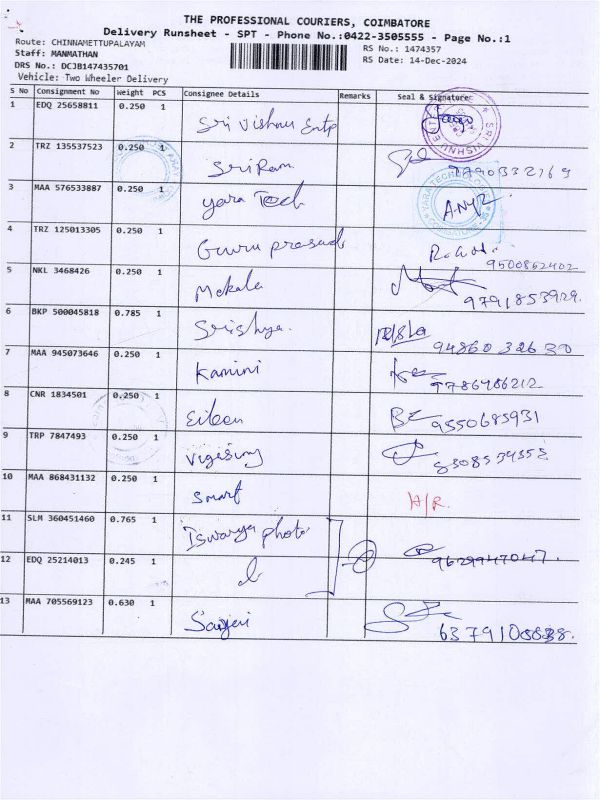 THE PROFESSIONAL COURIERS, COIMBATORE
Delivery Runsheet - SPT - Phone No.:0422-3505555 - Page No.:1
Route: CHINNAMETTUPALAYAM
RS No.: 1474357
Staff: MANMATHAN
RS Date: 14-Dec-2024
DRS No.: DCJB147435701
Vehicle: Two Wheeler Delivery
S No Consignment No Weight PCS Consignee Details Remarks Seal & Signature
1 EDQ 25658811 0.250 1 Sri Vishnu Entp
2 TRZ 135537523 0.250 1 Sri Ram
3 MAA 576533887 0.250 1 Yara Tech
4 TRZ 125013305 0.250 1 Guru prasad 9500862402
5 NKL 3468426 0.250 1 Mekala 9791853929.
6 BKP 500045818 0.785 1 94860 32630
7 MAA 945073646 0.250 1 Kamini 9786486212
8 CNR 1834501 0.250 1 9550685931
9 TRP 7847493 0.250 1
10 MAA 868431132 0.250 1 Smart H/R.
11 SLM 360451460 0.765 1 Iswarya photo 9629947047.
12 EDQ 25214013 0.245 1
13 MAA 705569123 0.630 1